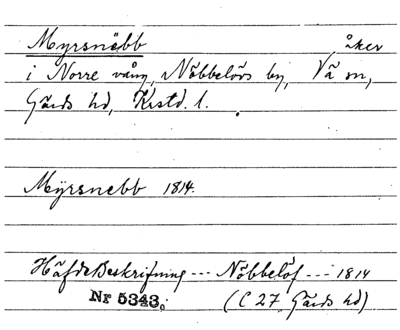 Myrsnäbb åker
i Norre vång, Nöbbelövs by, Vä sn,
Gärds hd, Krstd. l.
Myrsnebb 1814.
HäfdeBeskrifning --- Nöbbelöf --- 1814
Nr 5343. (C 27 Gärds hd)